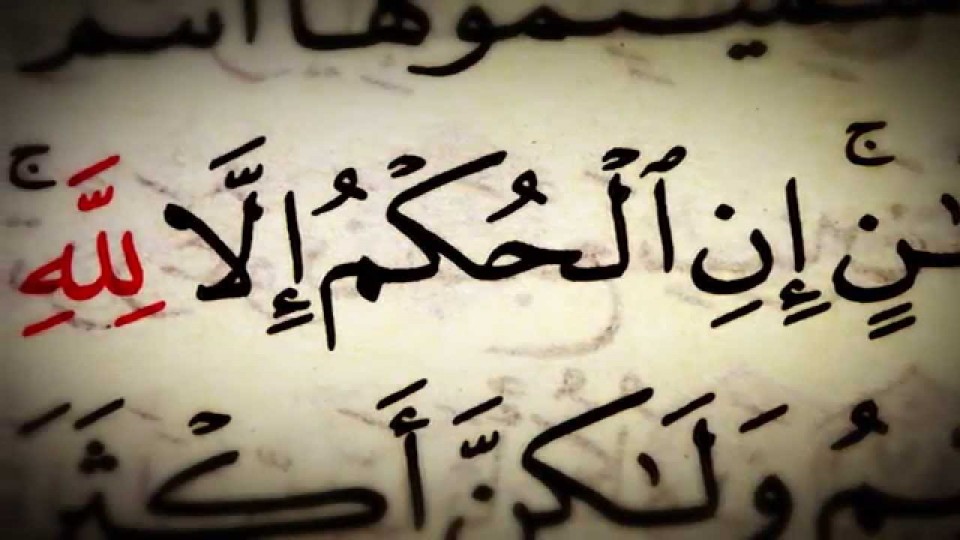 سميتموها أسم
ـٰنٍ ۚ إِنِ ٱلْحُكْمُ إِلَّا لِلَّهِ ۚ
ـمُ وَلَـٰكِنَّ أَكْثَرَ